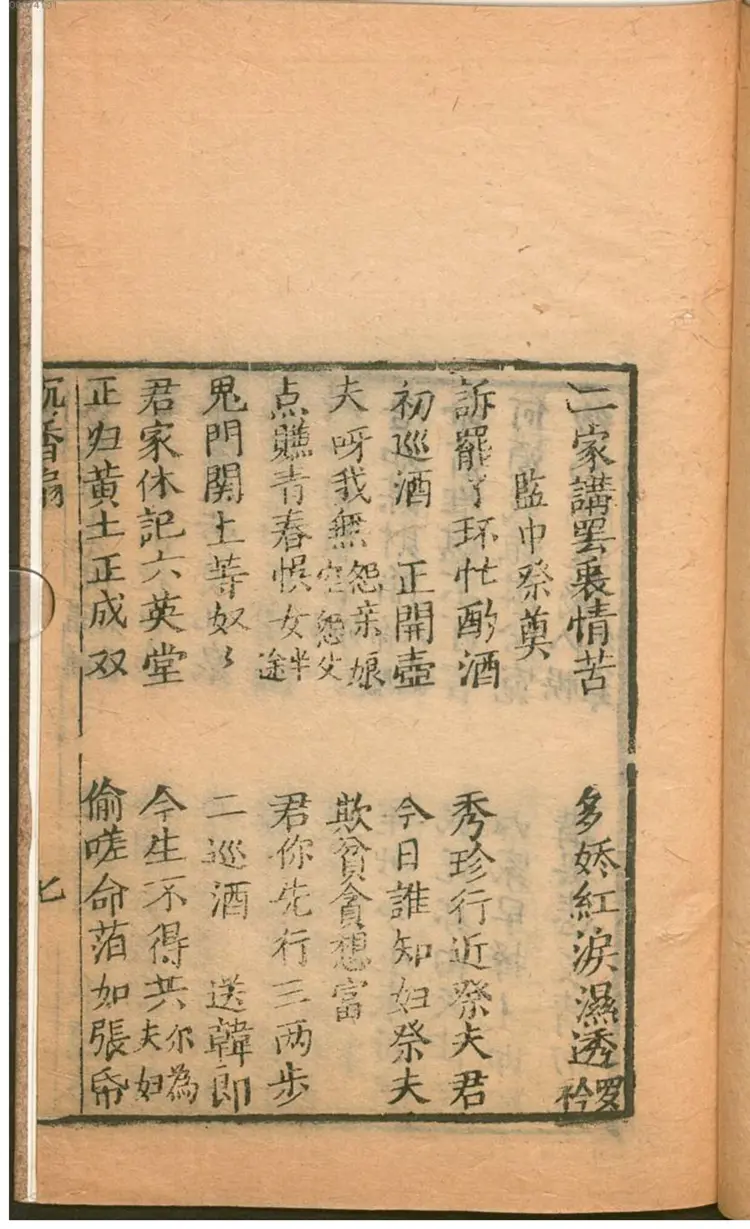 二家講罢衷情苦　多娇紅淚濕透罗衿
監中祭奠
訴罷丫环忙酌酒　秀珍行近祭夫君
初巡酒　正開壺　今日誰知妇祭夫
夫呀我無怨亲娘空怨父　欺貧貪想富
点赚青春悮女半途　君你先行三两步
鬼門関上等奴々　二巡酒　送韓郎
君家休記六英堂　今生不得共尔為夫妇
正归黄土正成双　偷嗟命萡如張帋
沉香扇　七